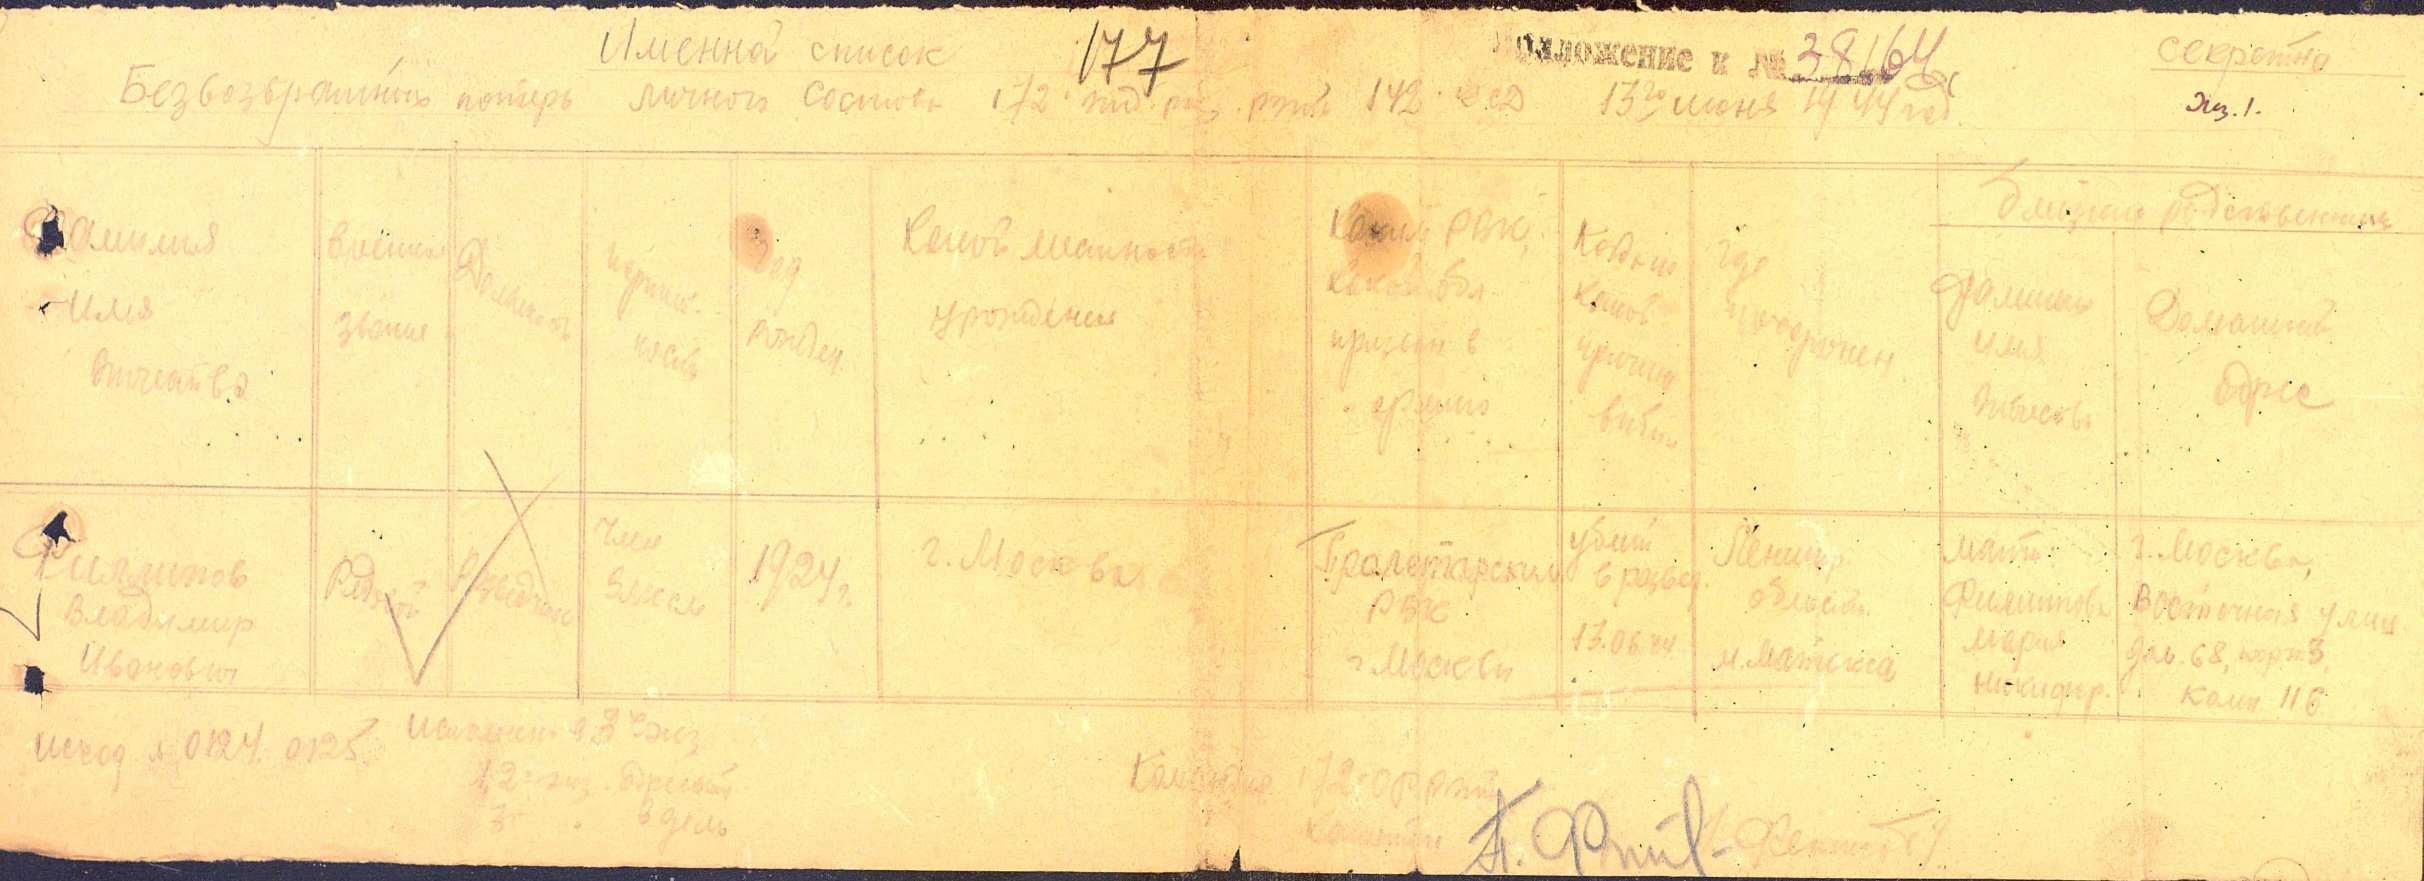 Именной список
177
Приложение к № 38164с
Секретно
Безвозвратных потерь личного состава 172 отд. раз. роты 142 с.д. 13го июня 1944 год.
Экз. 1.
Фамилия
Имя
Отчество
Военное
звание
Должность
Партий-
ность
Год
рожден.
Какой местности
урождения
Каким РВК,
какой обл.
призван в
армию
Когда и
какой
причине
выбыл
Где
похоронен
Ближайш родственник
Фамилия
имя
отчество
Домашний
адрес
Филиппов
Владимир
Иванович
Рядовой
Разведчик
Член
ВЛКСМ
1924 г.
г. Москва
Пролетарским
РВК
г. Москвы
убит
в развед.
13.06.44
Ленингр.
область
м. Матокса
мать
Филиппова
Мария
Никифор.
г. Москва,
Восточная улиц.
дом. 68, корп 3,
комн 116
Исход № 0124. 0125.
экз
1, 2 экз. адресат
3 " в дело
Командир 172 ОРРоты
капитан